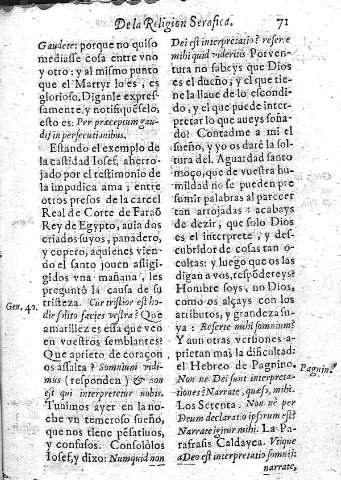 De la Religion Serafica.
71
Gaudete: porque no quiso
mediasse cosa entre vno
y otro: y al mismo punto
que el Martyr lo es, es
glorioso. Diganle expres-
samente, y notifiquesele,
esto es: Per præceptum gau-
di in persecutionibus.
Estando el exemplo de
la castidad Iosef, aherro-
jado por el testimonio de
la impudica ama, entre
otros presos de la carcel
Real de Corte de Faraõ
Rey de Egypto, auia dos
criados suyos, panadero,
y copero, aquienes vien-
do el santo jouen afligi-
gidos vna mañana, les
preguntò la causa de su
tristeza. Cur tristior est ho-
die solito facies vestra? Que
amarillez es essa que veo
en vuestros semblantes?
Que aprieto de coraçon
os assalta? Somnium vidi-
mus (responden) & non
est qui interpretetur nobis.
Tuuimos ayer en la no-
che vn temeroso sueño,
que nos tiene pẽsatiuos,
y confusos. Consolòlos
Iosef, y dixo: Numquid non
Gen. 40.
Dei est interpretatio? referte
mihi quid videritis Por ven-
tura no sabeys que Dios
es el dueño; y el que tie-
ne la llaue de lo escondi-
do, y el que puede inter-
pretar lo que aueys soña-
do? Contadme a mi el
sueño, y yo os darè la sol-
tura del. Aguardad santo
moço, que de vuestra hu-
mildad no se pueden pre
sumir palabras al parecer
tan arrojadas: acabays
de dezir, que solo Dios
es el interprete, y des-
cubridor de cosas tan o-
cultas: y luego que os las
digan a vos, respõdereys?
Hombre soys, no Dios,
como os alçays con los
atributos, y grandeza su-
ya: Referte mihi somnium?
Y aun otras versiones a-
prietan mas la dificultad:
el Hebreo de Pagnino.
Non ne Dei sunt interpreta-
tiones? Narrate, queso, mihi.
Los Setenta. Non nè per
Deum declaratio ipsorum est?
Narrate igitur mihi. La Pa-
rafrasis Caldayca. Vtique
a Deo est interpretatio somnij:
narrate,
Pagnin.